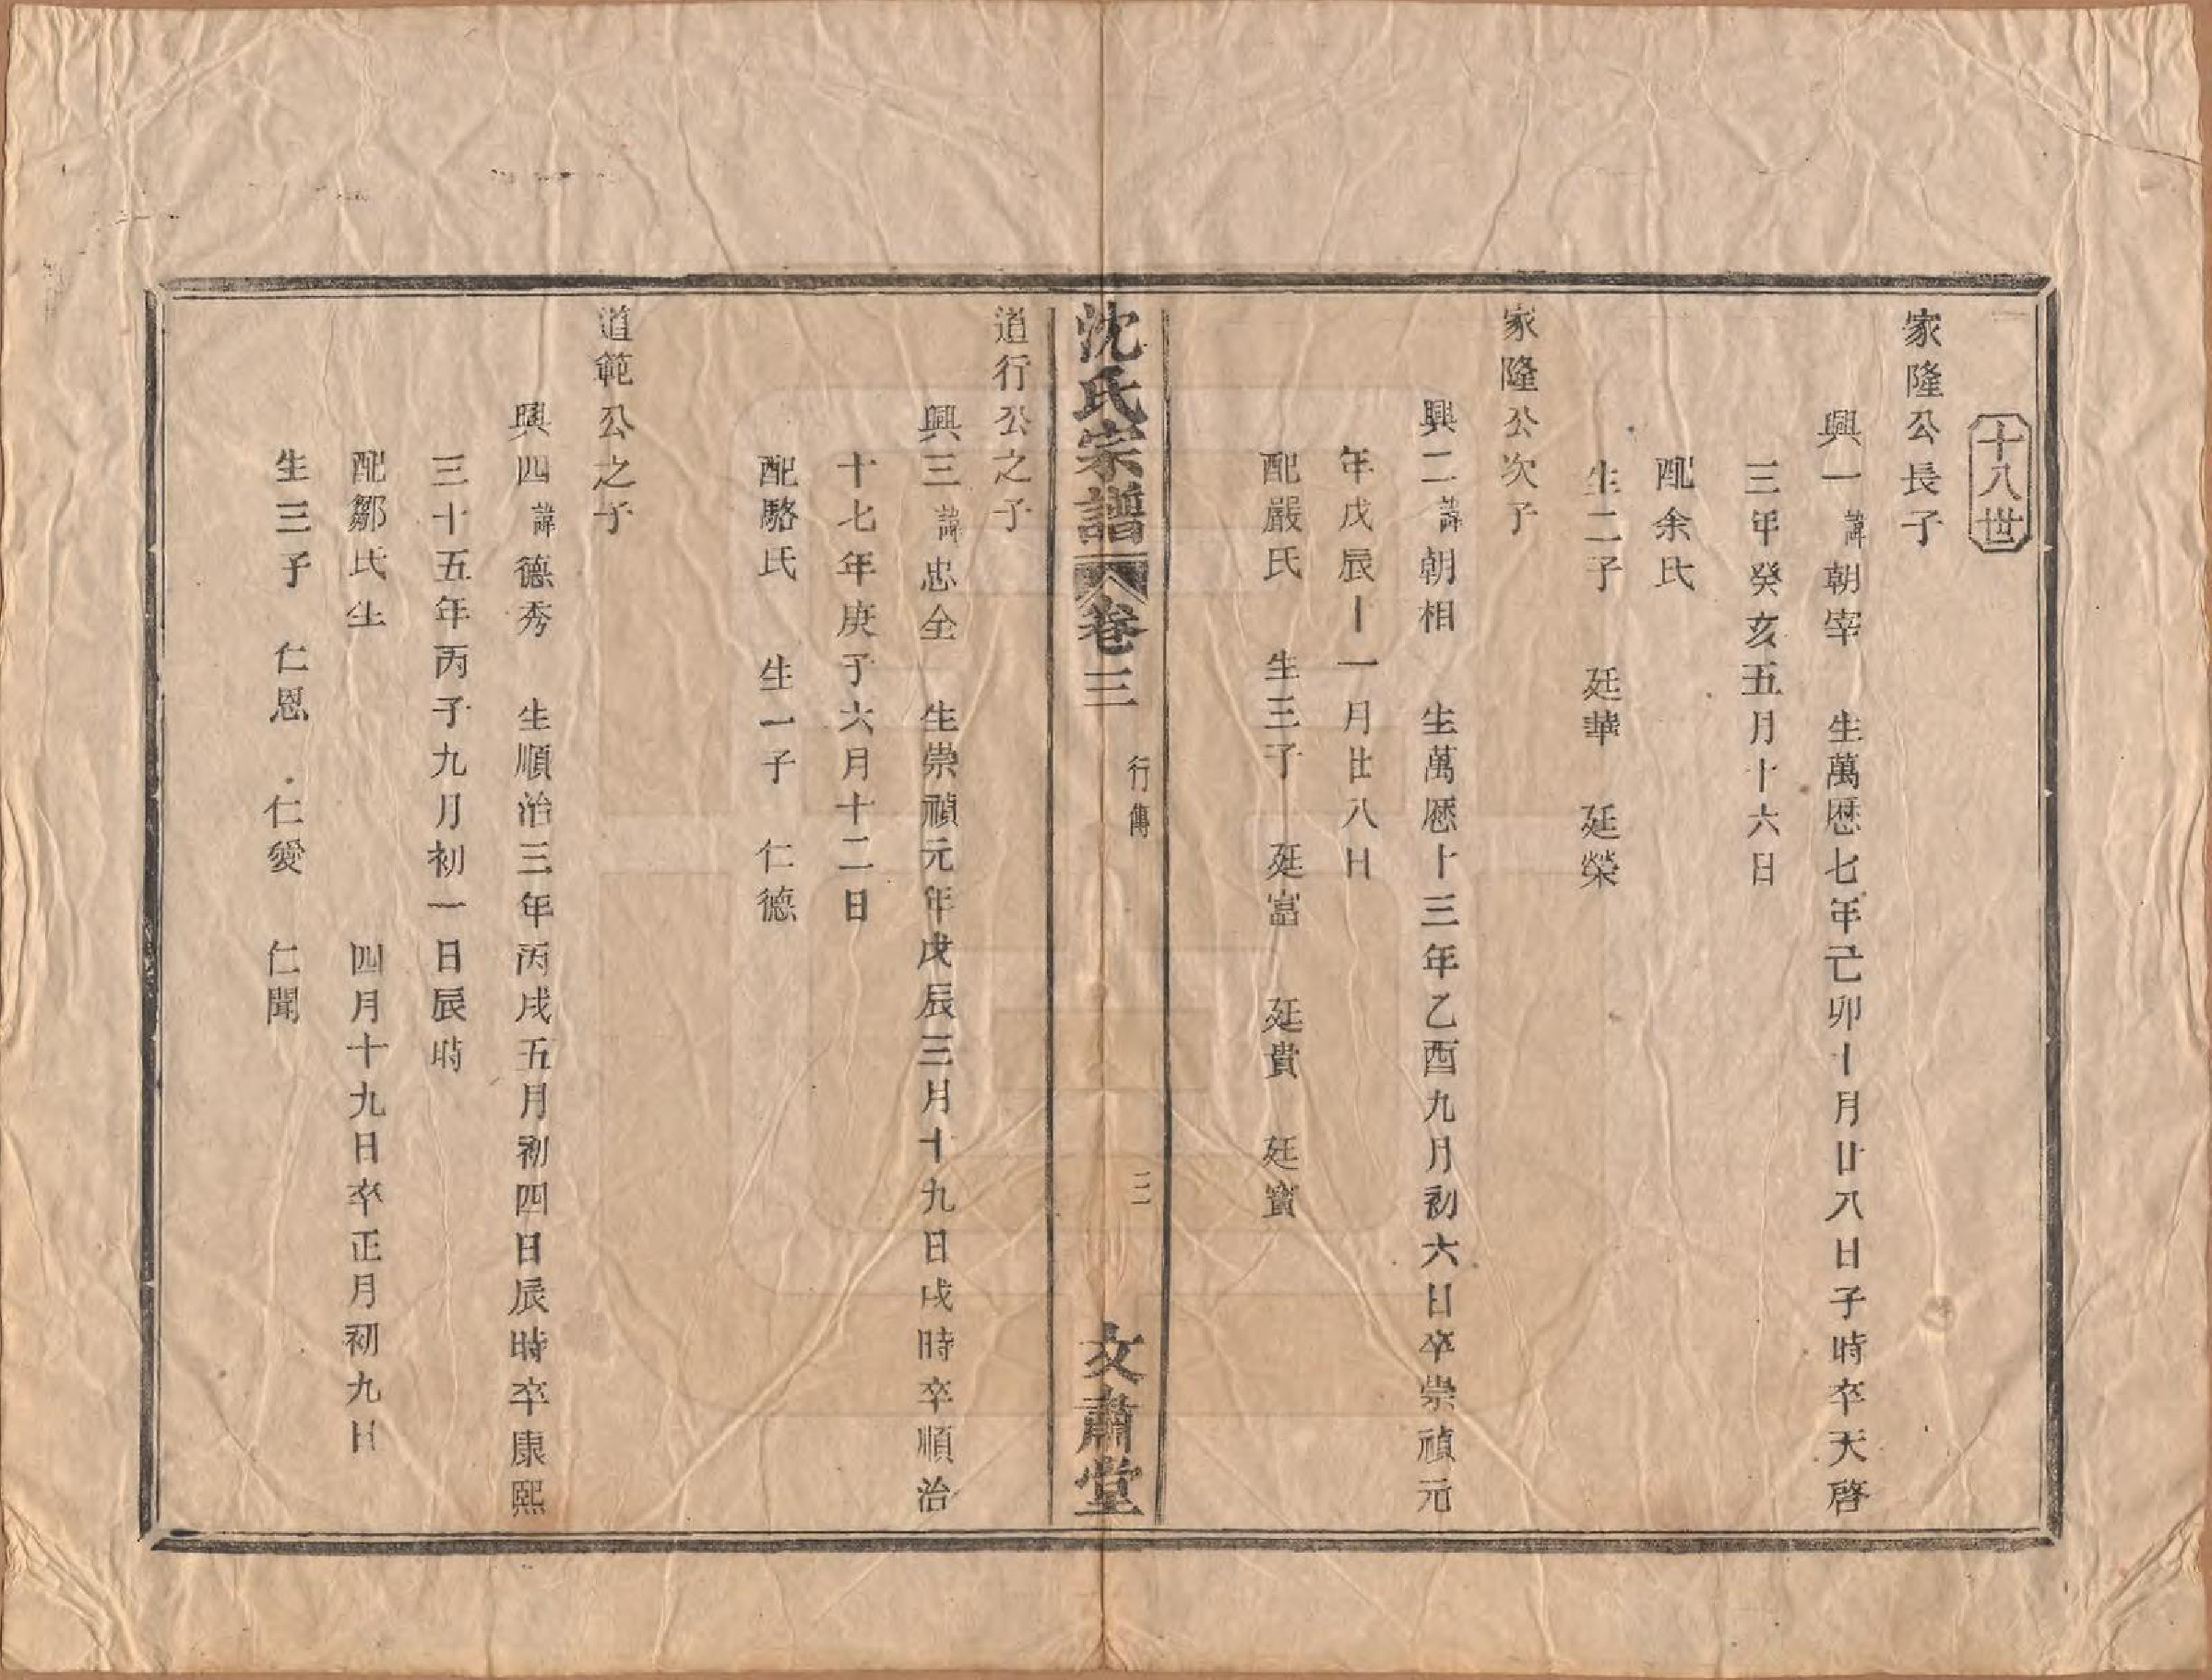 十八世
家隆公長子
興一諱朝宰　生萬厯七年己卯十月廿八日子時卒天啓
三年癸亥五月十六日
配余氏
生二子　廷華　廷榮
家隆公次子
興二諱朝相　生萬厯十三年乙酉九月初六日卒崇禎元
年戊辰十一月廿八日
配嚴氏　生三子　廷富　廷貴　廷寶
沈氏宗譜　卷三　行傳　二　文肅堂
道行公之子
興三諱忠全　生崇禎元年戊辰三月十九日戌時卒順治
十七年庚子六月十二日
配駱氏　生一子　仁德
道範公之子
興四諱德秀　生順治三年丙戌五月初四日辰時卒康熙
三十五年丙子九月初一日辰時
配鄒氏生　四月十九日卒正月初九日
生三子　仁恩　仁愛　仁聞